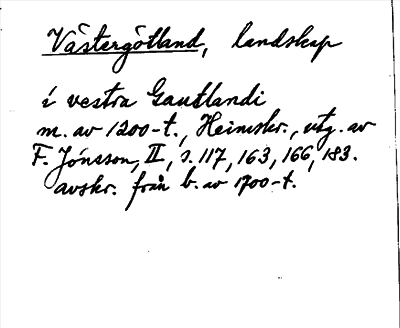 Västergötland, landskap
i vestra Gautlandi
m. av 1200-t., Heimskr., utg. av
F. Jónsson, II, s. 117, 163, 166, 183.
avskr. från b. av 1700-t.